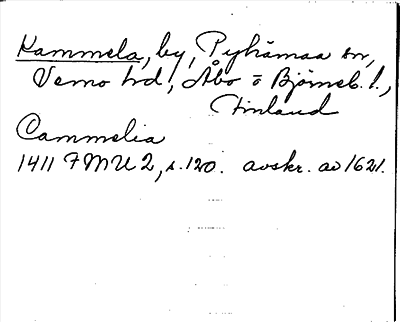 Kammela, by, Pyhämaa sn,
Vemo hd, Åbo o Björneb. l.,
Finland
Cammelia
1411 FMU 2, s. 120. avskr. av 1621.